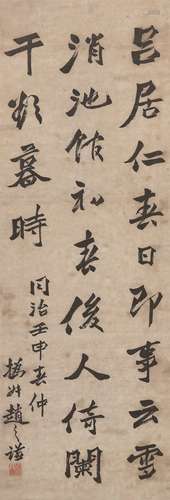 呂居仁春日即事云雪
消池館初春後人倚闌
干欲暮時
同治壬申春仲
撝叔趙之謙